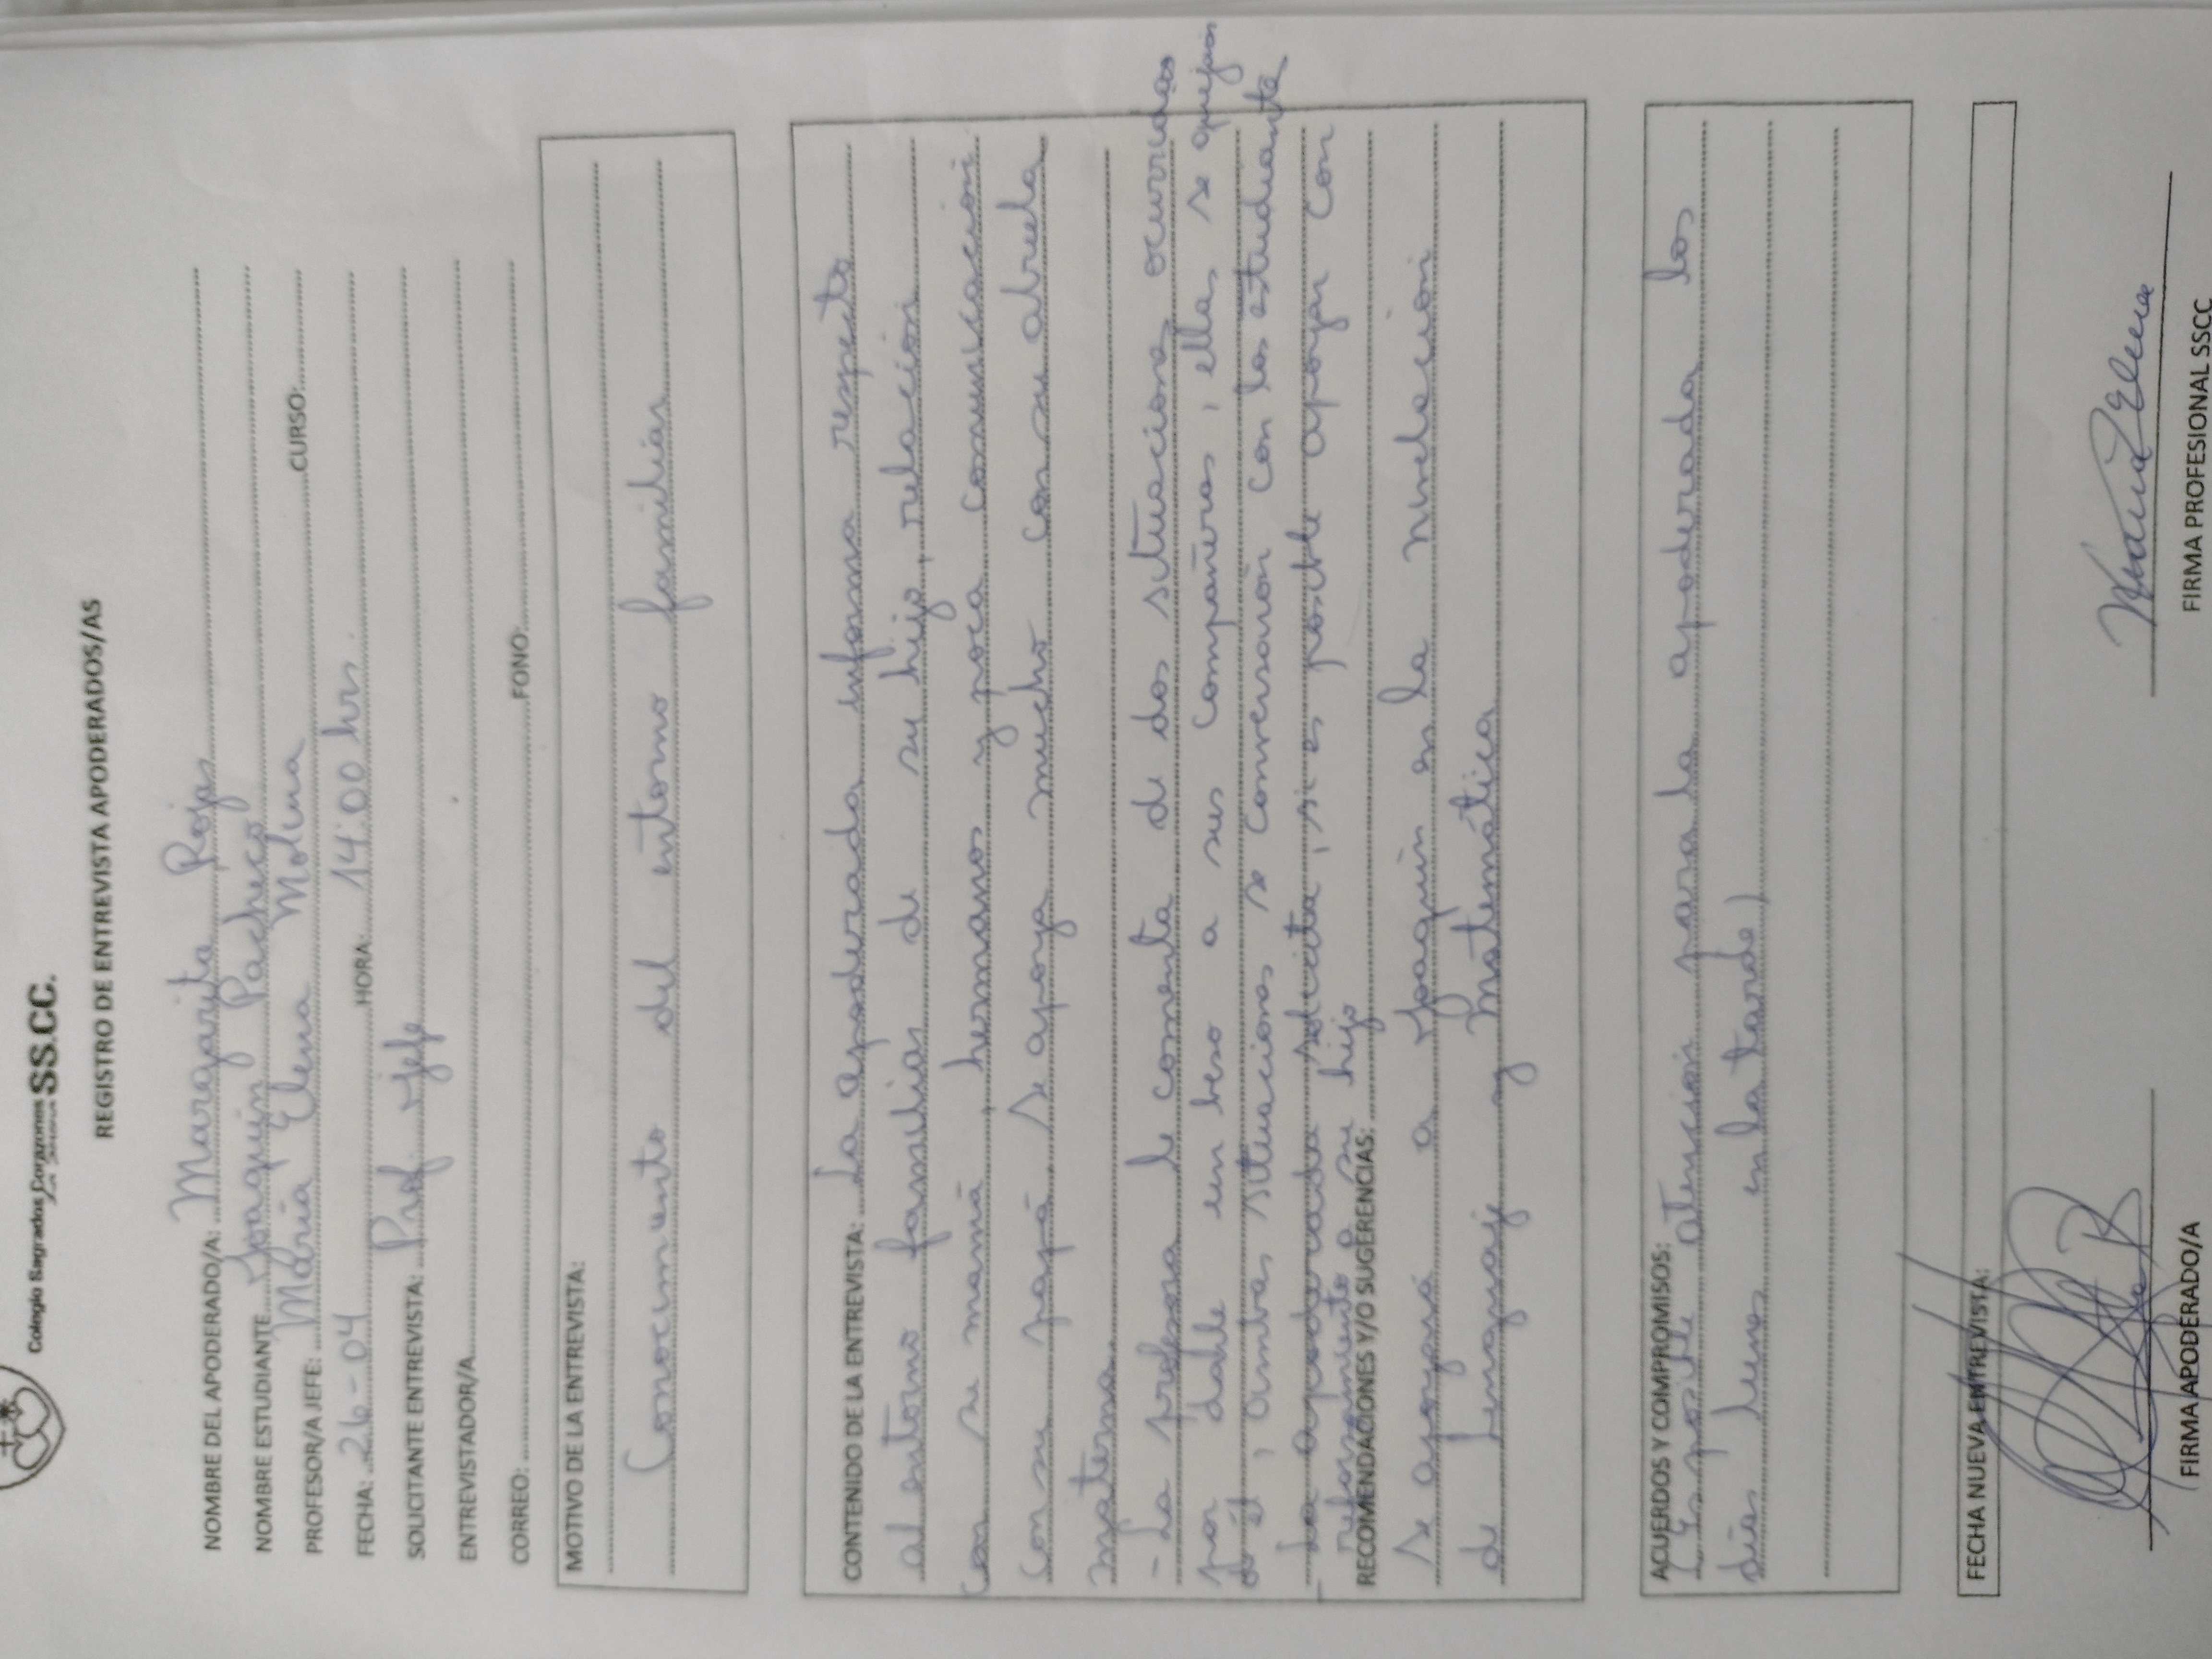 Colegio Sagrados Corazones SS.CC.
REGISTRO DE ENTREVISTA APODERADOS/AS
NOMBRE DEL APODERADO/A: Margarita Rojas
NOMBRE ESTUDIANTE Joaquín Pacheco
PROFESOR/A JEFE: María Elena Molina CURSO:
FECHA: 26-04 HORA: 14:00 hrs.
SOLICITANTE ENTREVISTA: Prof. Jefe
ENTREVISTADOR/A
CORREO: FONO:
MOTIVO DE LA ENTREVISTA:
Conocimiento del entorno familiar
CONTENIDO DE LA ENTREVISTA: La apoderada informa respecto
al entorno familiar de su hijo, relación
con su mamá, hermanos y poca comunicación
con su papá. Se apoya mucho con su abuela
materna.
- La profesora le comenta de dos situaciones ocurridas
por darle un beso a sus compañeras, ellas se quejan
de él, ambas situaciones se conversaron con los estudiantes
- La apoderada solicita, si es posible apoyar con
reforzamiento a su hijo
RECOMENDACIONES Y/O SUGERENCIAS:
Se apoyará a Joaquín en la nivelación
de Lenguaje y Matemática
ACUERDOS Y COMPROMISOS:
(Es posible atención para la apoderada los
días lunes en la tarde)
FECHA NUEVA ENTREVISTA:
FIRMA APODERADO/A
FIRMA PROFESIONAL SSCC